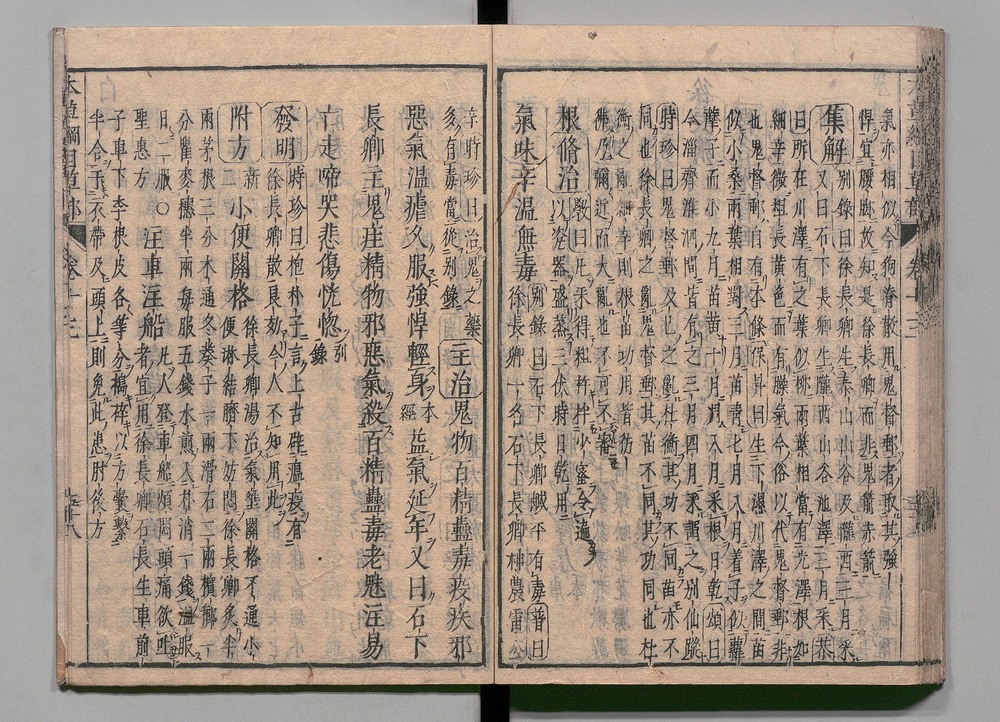 氣亦相似今狗脊散用鬼督郵者取其強
悍宜腰脚故知是徐長卿而非鬼箭赤箭
集解別錄曰徐長卿生泰山山谷及隴西三月采
又曰石下長卿生隴西山谷池澤三月采恭
曰所在川澤有之葉似柳兩葉相當有光澤根如
細辛微粗長黃色而有臊氣今俗以代鬼督郵非
也鬼督郵自有本條保昇曰生下濕川澤之間苗
似小桑兩葉相對三月苗青七月八月着子似蘿
摩子而小九月苗黃十月凋八月采根日乾頌曰
今淄齊淮泗間皆有之三月四月采謂之別仙蹤
時珍曰鬼督郵及已之亂杜衡其功不同苗亦不
同也徐長卿之亂鬼督郵其苗不同其功同也杜
衡之亂細辛則根苗功用皆彷
彿乃彌近而大亂也不可不審
根修治
氣味辛溫無毒別錄曰石下長卿鹹平有毒普曰
徐長卿一名石下長卿神農雷公
辛時珍曰治鬼之藥
多有毒當從別錄
主治鬼物百精蠱毒疫疾邪
惡氣溫瘧久服強悍輕身本經益氣延年又曰石下
長卿主鬼疰精物邪惡氣殺百精蠱毒老魅注易
亡走啼哭悲傷恍惚別錄
發明時珍曰抱朴子言上古辟瘟疫有
徐長卿散良効今人不知用此
附方新二小便關格徐長卿湯治氣壅關格不通小
便淋結臍下妨悶徐長卿炙半
兩茅根三分木通冬葵子一兩滑石二兩檳榔一
分瞿麥穗半兩每服五錢水煎入朴消一錢溫服
日二服○注車注船凡人登車船煩悶頭痛欲吐
聖惠方者宜用徐長卿石長生車前
子車下李根皮各等分搗碎以方囊繫
半合于衣帶及頭上則免此患肘後方